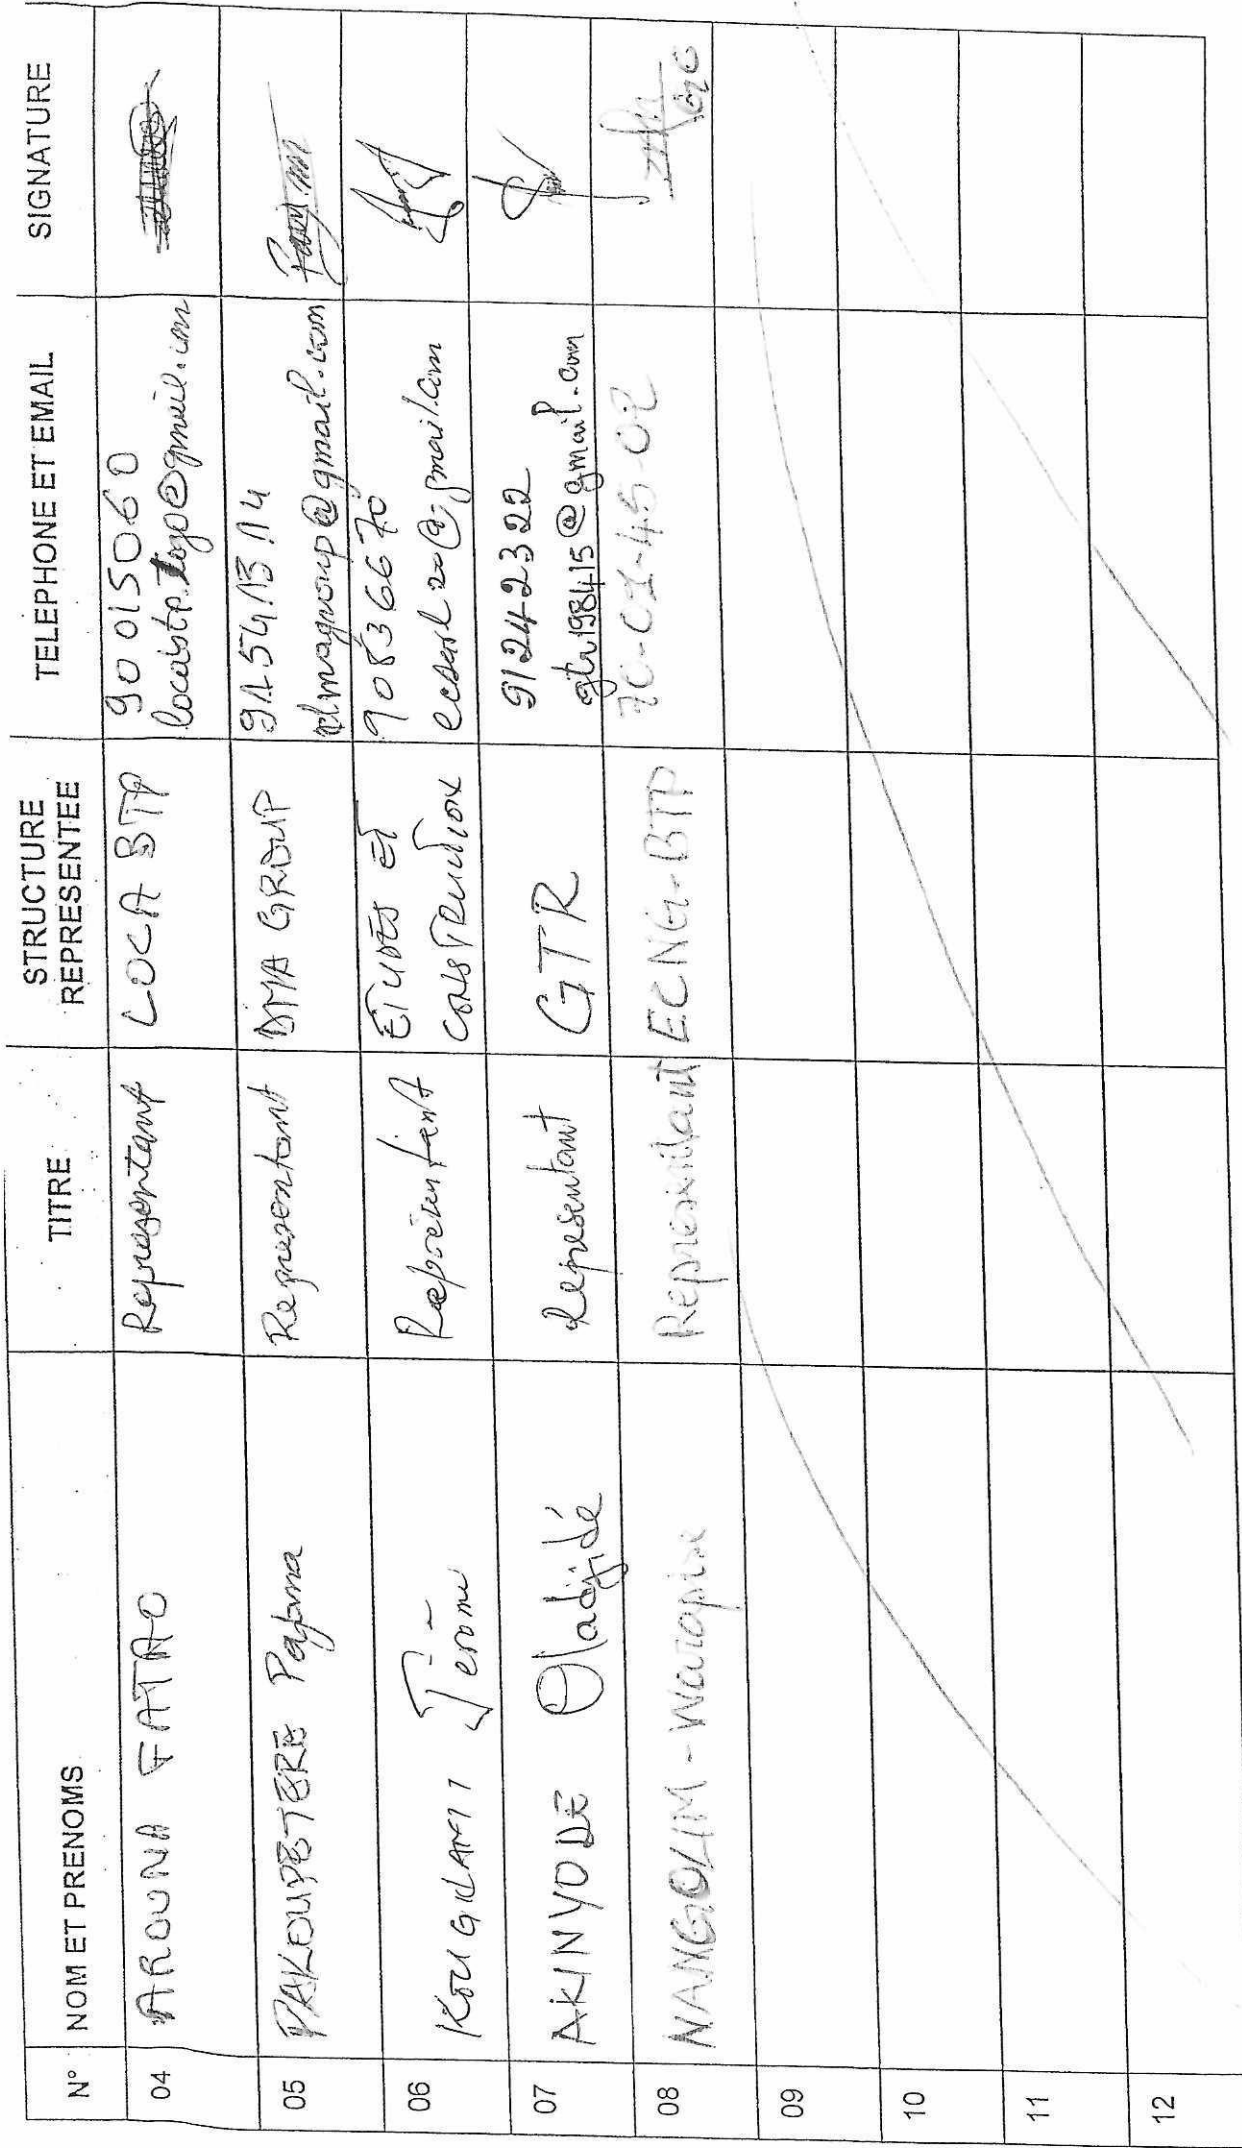 N° NOM ET PRENOMS TITRE STRUCTURE REPRESENTEE TELEPHONE ET EMAIL SIGNATURE
04 AROUNA FATAO Representant LOCA BTP 90015060
locabtp.togo@gmail.com
05 PAKOUPETERE Representant DMA GROUP 91541314
dmagroup@gmail.com
06 Jérome Représentant ETUDES ET 90836670
CONSTRUCTION @gmail.com
07 AKINYODE Oladjidé Representant GTR 91242322
gtr198415@gmail.com
08 NANGOLIM - Representant ECNG-BTP 70-01-45-02
09
10
11
12